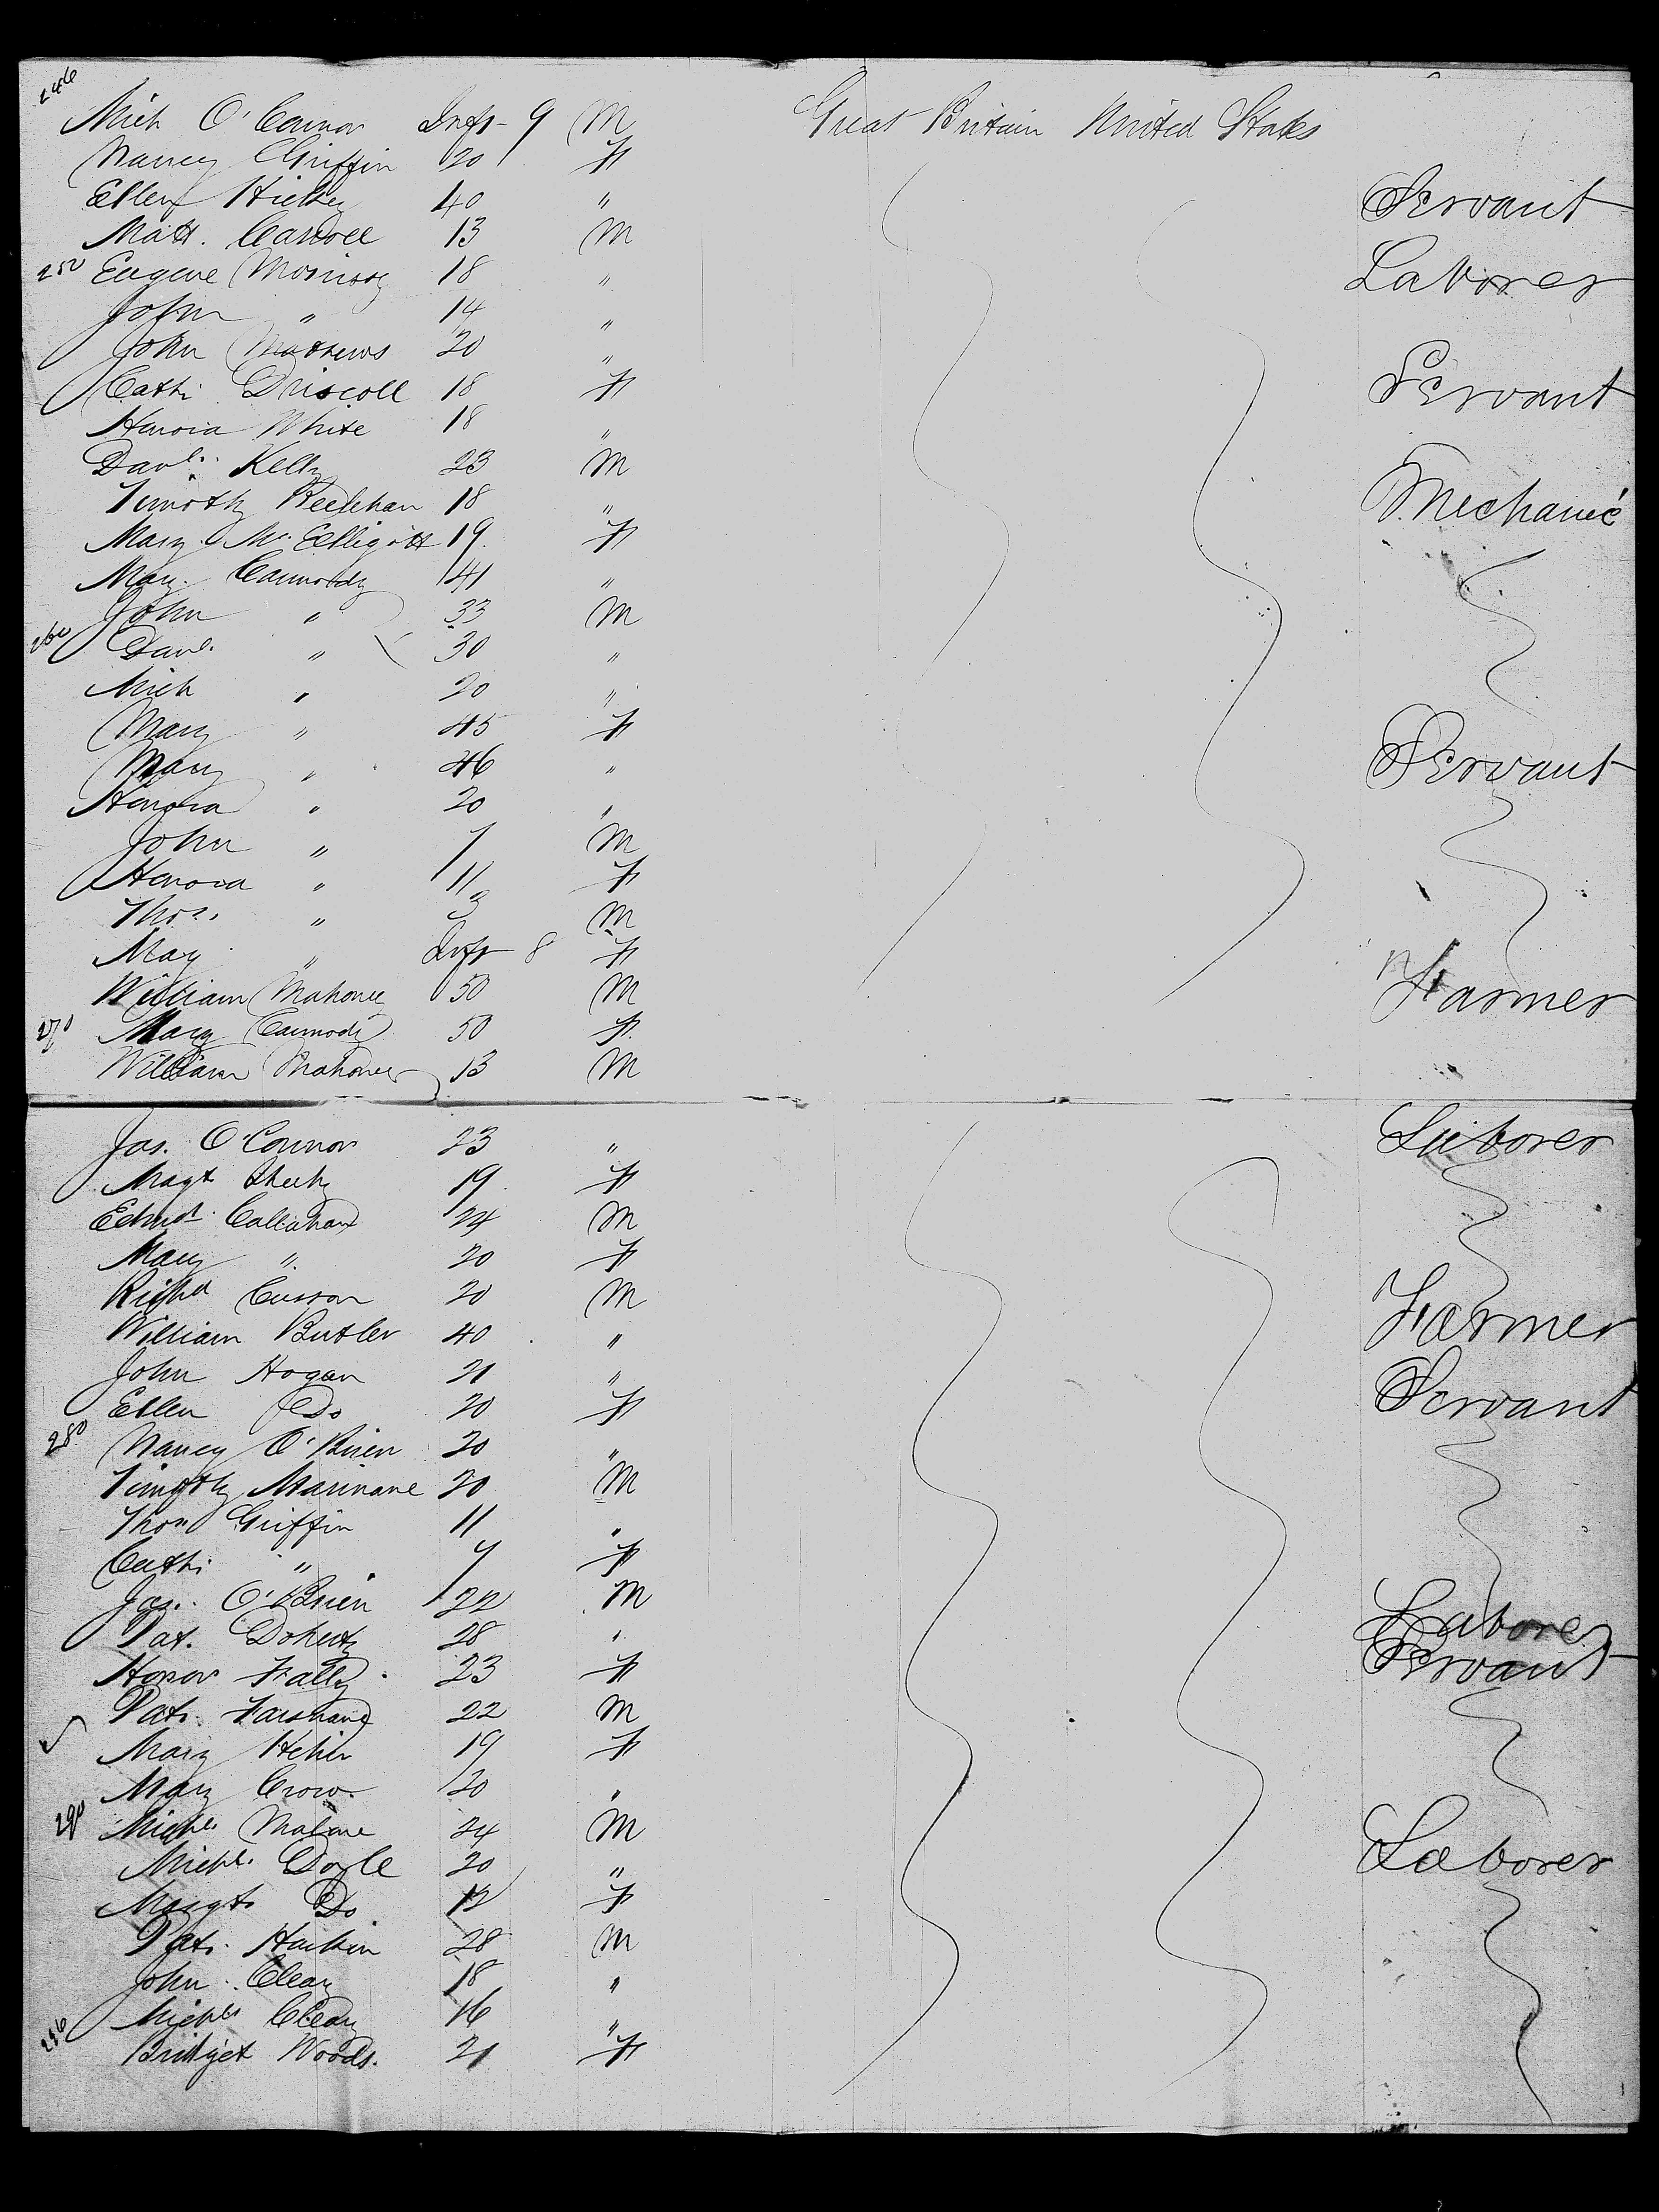 246
Mich O'Connor Inft 9 M Great Britain United States
Nancy Griffin 20 F
Ellen Hickey 40 " Servant
Matt. Carroll 13 M
250 Eugene Morrissy 18 " Laborer
John " 14 "
John Mathews 20 "
Cath: Driscoll 18 F Servant
Honora White 18 "
Danl. Kelly 23 M
Timothy 18 " Mechanic
Mary McElligott 19 F
Mary Carmody 41 "
John " 33 M
260 Danl. " 30 "
Mich " 20 "
Mary " 45 F
Mary " 46 " Servant
Honora " 20 "
John " 7 M
Honora " 11 F
Thos. " 3 M
May " Inft 8 F
William Mahoney 50 M Farmer
270 Mary Carmody 50 F
William Mahoney 13 M
Jas. O'Connor 23 " Laborer
Magt Sheehy 19 F
Edmd. Callahan 24 M
Mary " 20 F
Richd Cusson 20 M
William Butler 40 " Farmer
John Hogan 21 "
Ellen Do 20 F Servant
280 Nancy O'Brien 20 "
Timothy Marinane 20 M
Thos Griffin 11 "
Cath: " 7 F
Jas. O'Brien 22 M
Pat. Doherty 28 " Laborer
Honor Fally 23 F Servant
Pat. 22 M
Mary Hehir 19 F
Mary Crow 20 "
290 Michl. Malone 24 M
Michl. Doyle 20 " Laborer
Margt. Do 12 F
Pat. Harkin 28 M
John Cleary 18 "
Michl. Cleary 16 "
296 Bridget Woods. 21 F